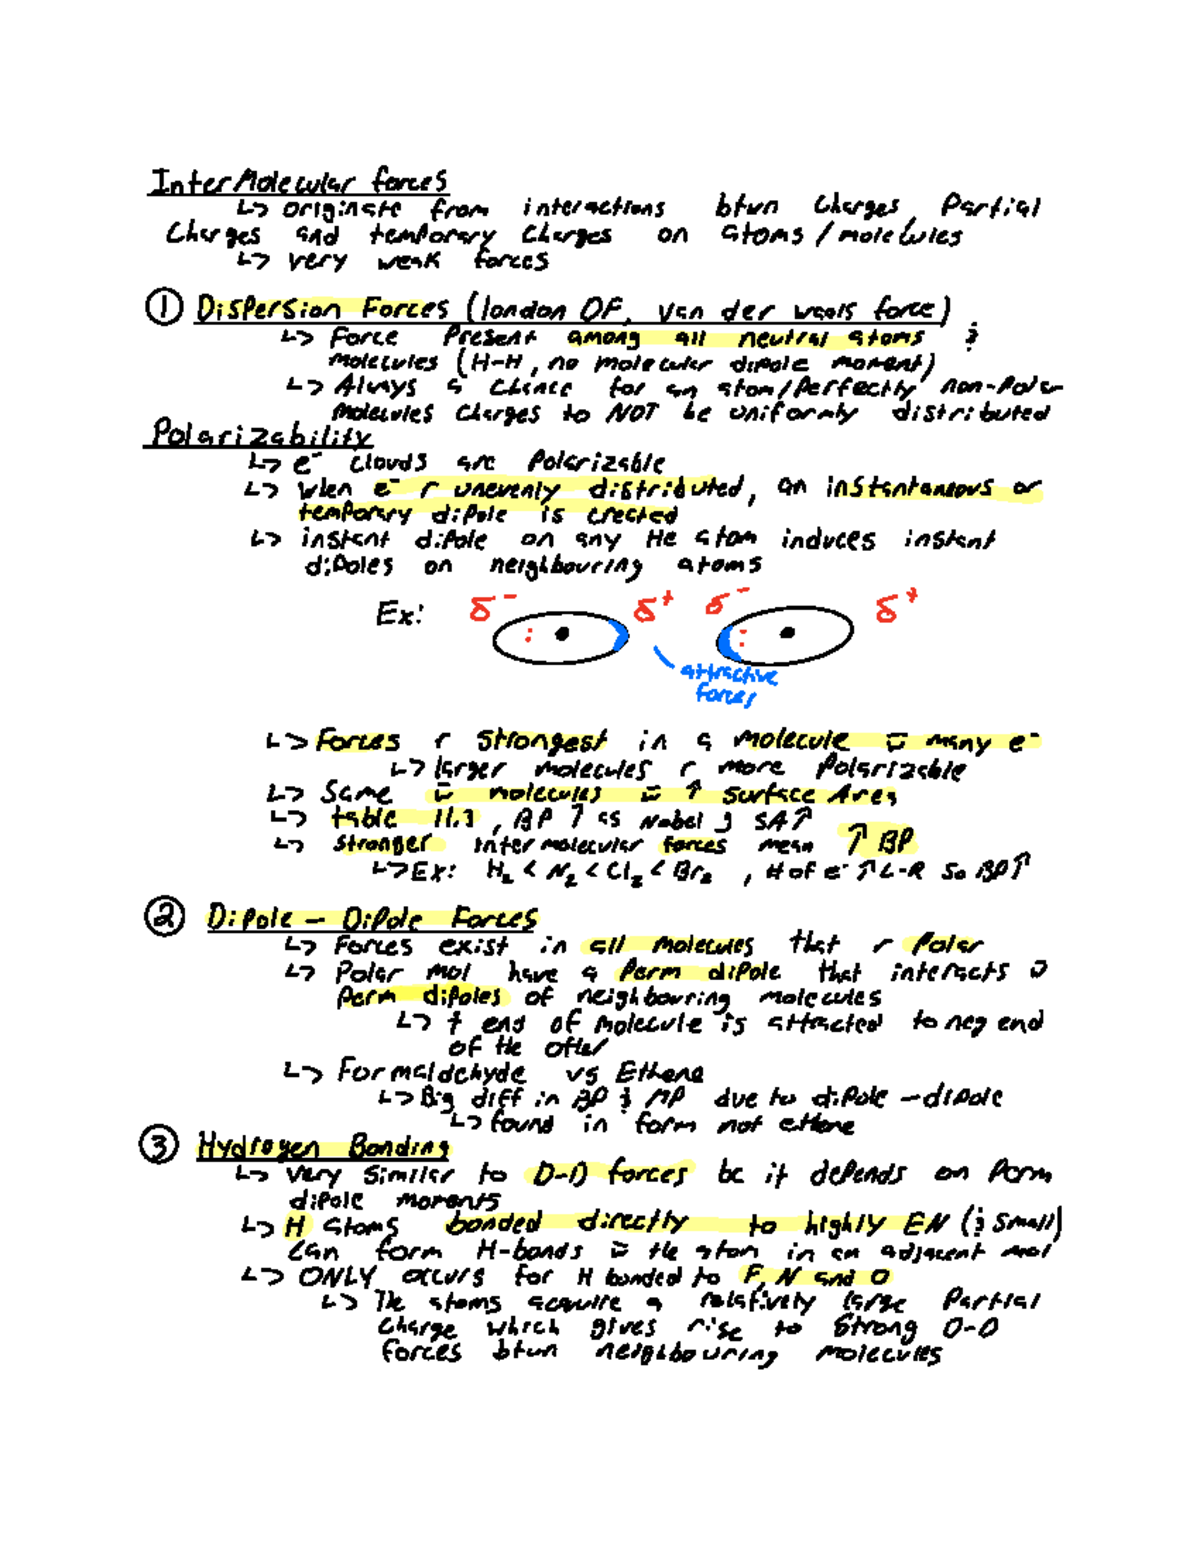 InterMolecular forces
↳ originate from interactions btwn Charges, Partial
Charges and temporary Charges on atoms/molecules
↳ very weak forces
① Dispersion Forces (london DF, Van der waals force)
↳ Force Present among all neutral atoms &
molecules (H-H, no molecular dipole moment)
↳ Always a chance for an atom/Perfectly non-Polar
Molecules Charges to NOT be uniformly distributed
Polarizability
↳ e⁻ clouds are Polarizable
↳ when e⁻ r unevenly distributed, an instantaneous or
temporary dipole is created
↳ instant dipole on any He atom induces instant
dipoles on neighbouring atoms
Ex: δ⁻ δ⁺ δ⁻ δ⁺
attractive
forces
↳ Forces r strongest in a molecule w̄ many e⁻
↳ larger molecules r more Polarizable
↳ Same w̄ molecules w̄ ↑ Surface Area
↳ table 11.3, BP ↑ as Nobel g SA↑
↳ stronger intermolecular forces mean ↑ BP
↳ Ex: H₂ < N₂ < Cl₂ < Br₂, # of e⁻ ↑ L-R so BP↑
② Dipole - Dipole Forces
↳ Forces exist in all molecules that r Polar
↳ Polar mol have a Perm dipole that interacts w̄
Perm dipoles of neighbouring molecules
↳ + end of molecule is attracted to neg end
of the other
↳ Formaldehyde vs Ethane
↳ Big diff in BP & MP due to dipole-dipole
↳ found in form not ethane
③ Hydrogen Bonding
↳ Very Similar to D-D forces bc it depends on Perm
dipole moments
↳ H atoms bonded directly to highly EN (& Small)
Can form H-bonds w̄ the atom in an adjacent mol
↳ ONLY occurs for H bonded to F, N and O
↳ The atoms acquire a relatively large Partial
Charge which gives rise to Strong D-D
forces btwn neighbouring molecules